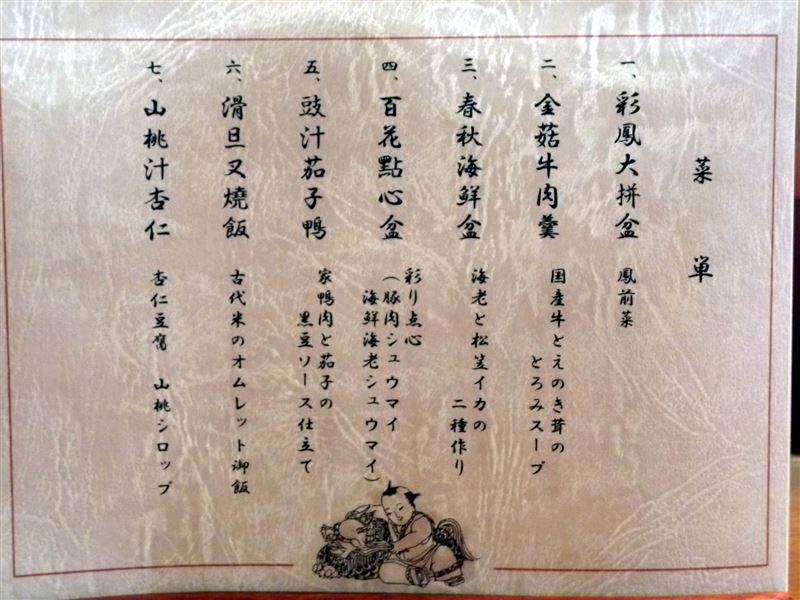 菜単
一、彩鳳大拼盆
鳳前菜
二、金菇牛肉羹
国産牛とえのき茸の
とろみスープ
三、春秋海鮮盆
海老と松笠イカの
二種作り
四、百花點心盆
彩り点心
(豚肉シュウマイ
海鮮海老シュウマイ)
五、豉汁茄子鴨
家鴨肉と茄子の
黒豆ソース仕立て
六、滑旦叉燒飯
古代米のオムレット御飯
七、山桃汁杏仁
杏仁豆腐 山桃シロップ